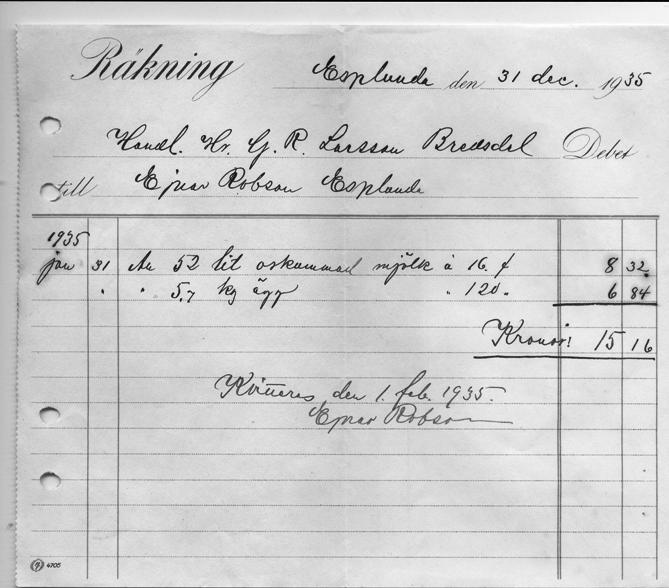 Räkning Esplunda den 31 dec. 1935
Handl. Hr. G. R. Larsson Bredsdal Debet
till Ejnar Robson Esplunda
1935
jan 31 An 52 lit oskummad mjölk à 16. 8 32
" " 5,7 kg ägg " 120 " 6 84
Kronor! 15 16
Kvitteras den 1. feb. 1935.
Ejnar Robson
4705